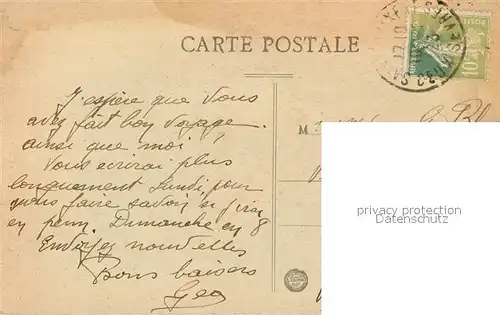 CARTE POSTALE
J'espère que vous
avez fait bon voyage
ainsi que moi !
Vous écrirai plus
longuement Lundi pour
vous faire savoir si j'irai
en perm. Dimanche en 8
Envoyez nouvelles
Bons baisers
Geo
M
privacy protection
Datenschutz
10